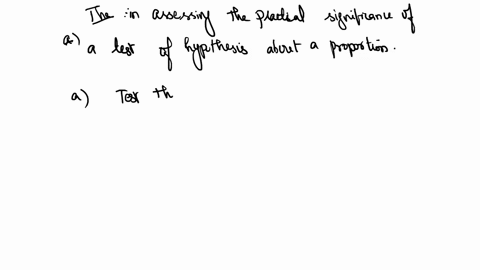 The in assessing the practical significance of
a) a test of hypothesis about a proportion.
a) Test th